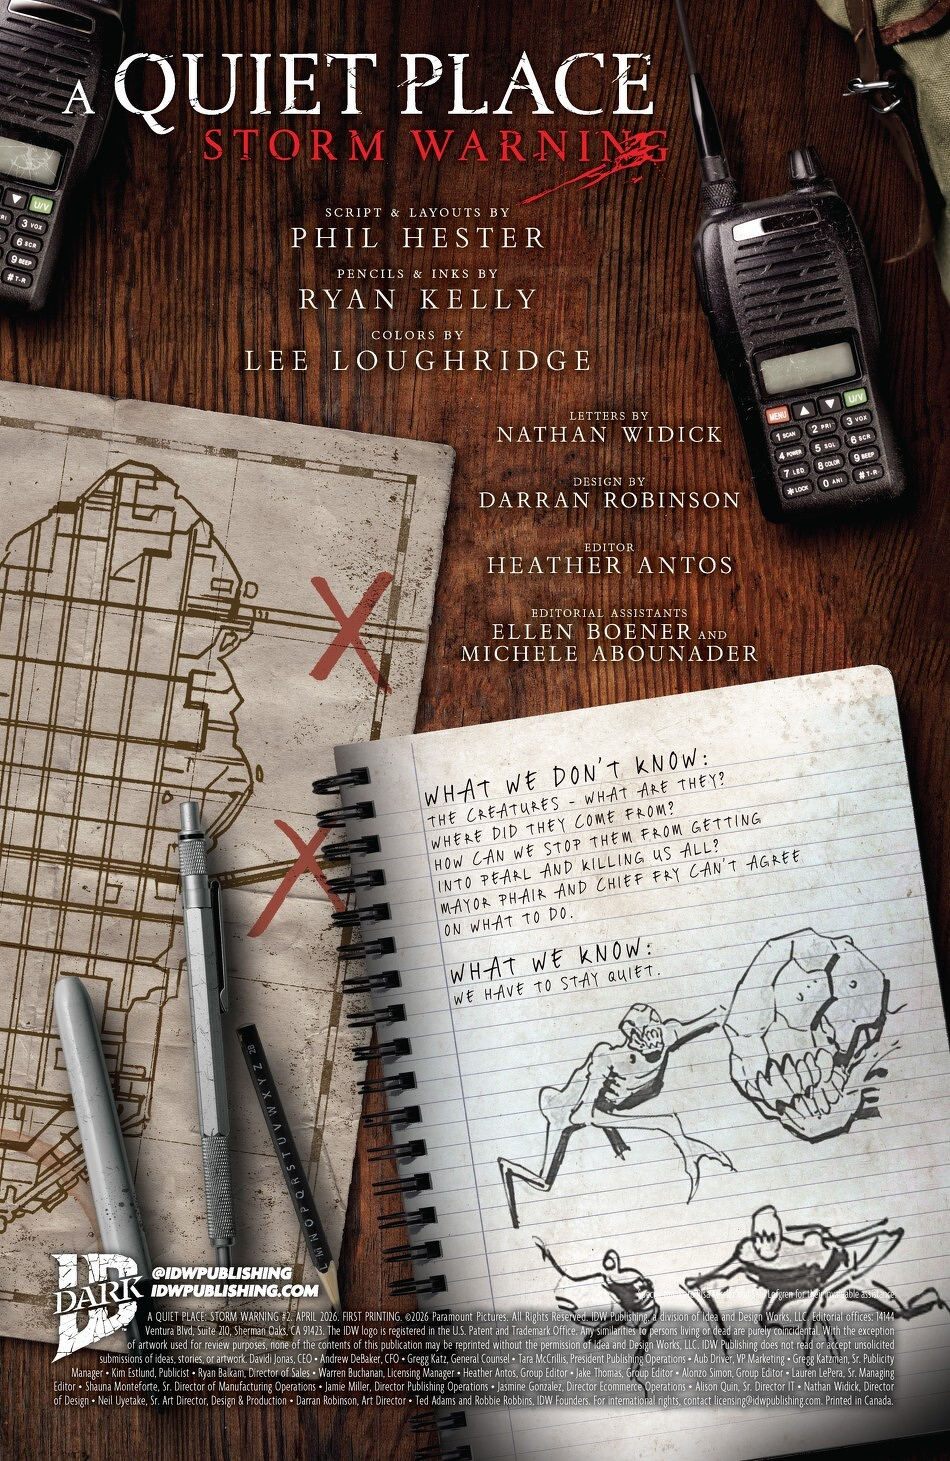 A QUIET PLACE
STORM WARNING
SCRIPT & LAYOUTS BY
PHIL HESTER
PENCILS & INKS BY
RYAN KELLY
COLORS BY
LEE LOUGHRIDGE
LETTERS BY
NATHAN WIDICK
DESIGN BY
DARRAN ROBINSON
EDITOR
HEATHER ANTOS
EDITORIAL ASSISTANTS
ELLEN BOENER AND
MICHELE ABOUNADER
U/V
3 VOX
6 SCR
9 BEEP
# T-R
MENU ▲ ▼ U/V
1 SCAN 2 PRI 3 VOX
4 POWER 5 SQL 6 SCR
7 LED 8 COLOR 9 BEEP
* LOCK 0 ANI # T-R
WHAT WE DON'T KNOW:
THE CREATURES - WHAT ARE THEY?
WHERE DID THEY COME FROM?
HOW CAN WE STOP THEM FROM GETTING
INTO PEARL AND KILLING US ALL?
MAYOR PHAIR AND CHIEF FRY CAN'T AGREE
ON WHAT TO DO.
WHAT WE KNOW:
WE HAVE TO STAY QUIET.
M N O P Q R S T U V W X Y Z 28
ID
DARK
@IDWPUBLISHING
IDWPUBLISHING.COM
for their invaluable assistance.
A QUIET PLACE: STORM WARNING #2. APRIL 2026. FIRST PRINTING. ©2026 Paramount Pictures. All Rights Reserved. IDW Publishing, a division of Idea and Design Works, LLC. Editorial offices: 14144
Ventura Blvd, Suite 210, Sherman Oaks, CA 91423. The IDW logo is registered in the U.S. Patent and Trademark Office. Any similarities to persons living or dead are purely coincidental. With the exception
of artwork used for review purposes, none of the contents of this publication may be reprinted without the permission of Idea and Design Works, LLC. IDW Publishing does not read or accept unsolicited
submissions of ideas, stories, or artwork. David Jonas, CEO • Andrew DeBaker, CFO • Gregg Katz, General Counsel • Tara McCrillis, President Publishing Operations • Aub Driver, VP Marketing • Gregg Katzman, Sr. Publicity
Manager • Kim Estlund, Publicist • Ryan Balkam, Director of Sales • Warren Buchanan, Licensing Manager • Heather Antos, Group Editor • Jake Thomas, Group Editor • Alonzo Simon, Group Editor • Lauren LePera, Sr. Managing
Editor • Shauna Monteforte, Sr. Director of Manufacturing Operations • Jamie Miller, Director Publishing Operations • Jasmine Gonzalez, Director Ecommerce Operations • Alison Quin, Sr. Director IT • Nathan Widick, Director
of Design • Neil Uyetake, Sr. Art Director, Design & Production • Darran Robinson, Art Director • Ted Adams and Robbie Robbins, IDW Founders. For international rights, contact licensing@idwpublishing.com. Printed in Canada.